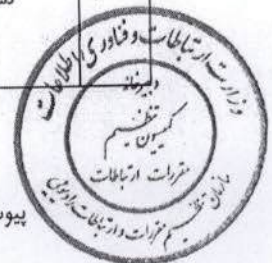 وزارت ارتباطات و فناوری اطلاعات
دبیرخانه
کمیسیون تنظیم
مقررات ارتباطات
سازمان تنظیم مقررات و ارتباطات رادیویی
پیوس